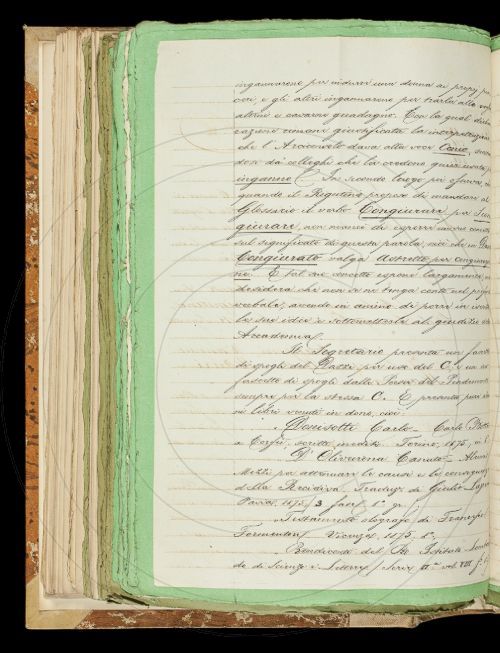 ingannarono per indurre una donna ai propj pia
ceri, e gli altri ingannarono per trarla alla vogl
altrui e cavarne guadagno. Con la qual dichia
razione rimane giustificata la interpretazione
che l'Arciconsolo dava alla voce Conio,
don da' colleghi che la credono quivi usata p
inganno. In secondo luogo poi
quando il Rigutini propose di mandare al
Glossario il verbo Congiurare per Scon
giurare, non mancò di esporre
sul significato di questa parola, sì che in Dan
Congiurato valga Astretto per congiurazio
ne. E tal suo concetto espone largamente, ma
desidera che non se ne tenga conto nel proce
verbale, avendo in animo di porre in iscrit
le sue idee e sottometterle al giudizio de
Accademia.
Il Segretario presenta un fasci
di spogli del Pazzi per uso del C, e un
fascetto di spogli dalle Poesie del Pindemonte
sempre per la stessa C. E presenta poi i se
ni libri venuti in dono, cioè:
Donisotti Carlo. Carlo Botta
a Corfù, scritti inediti. Torino, 1875,
D'Olivecrona Canuto. Alcuni
Mezzi per attenuare le cause e le conseguenz
della Recidiva. Traduz. di Giulio
1875, 3
Testamento olografo di Francesco
Formenton. Vicenza, 1875. 8°.
Rendiconti del R. Istituto Lombar
do di Scienze e Lettere. Serie IIª vol. VIII